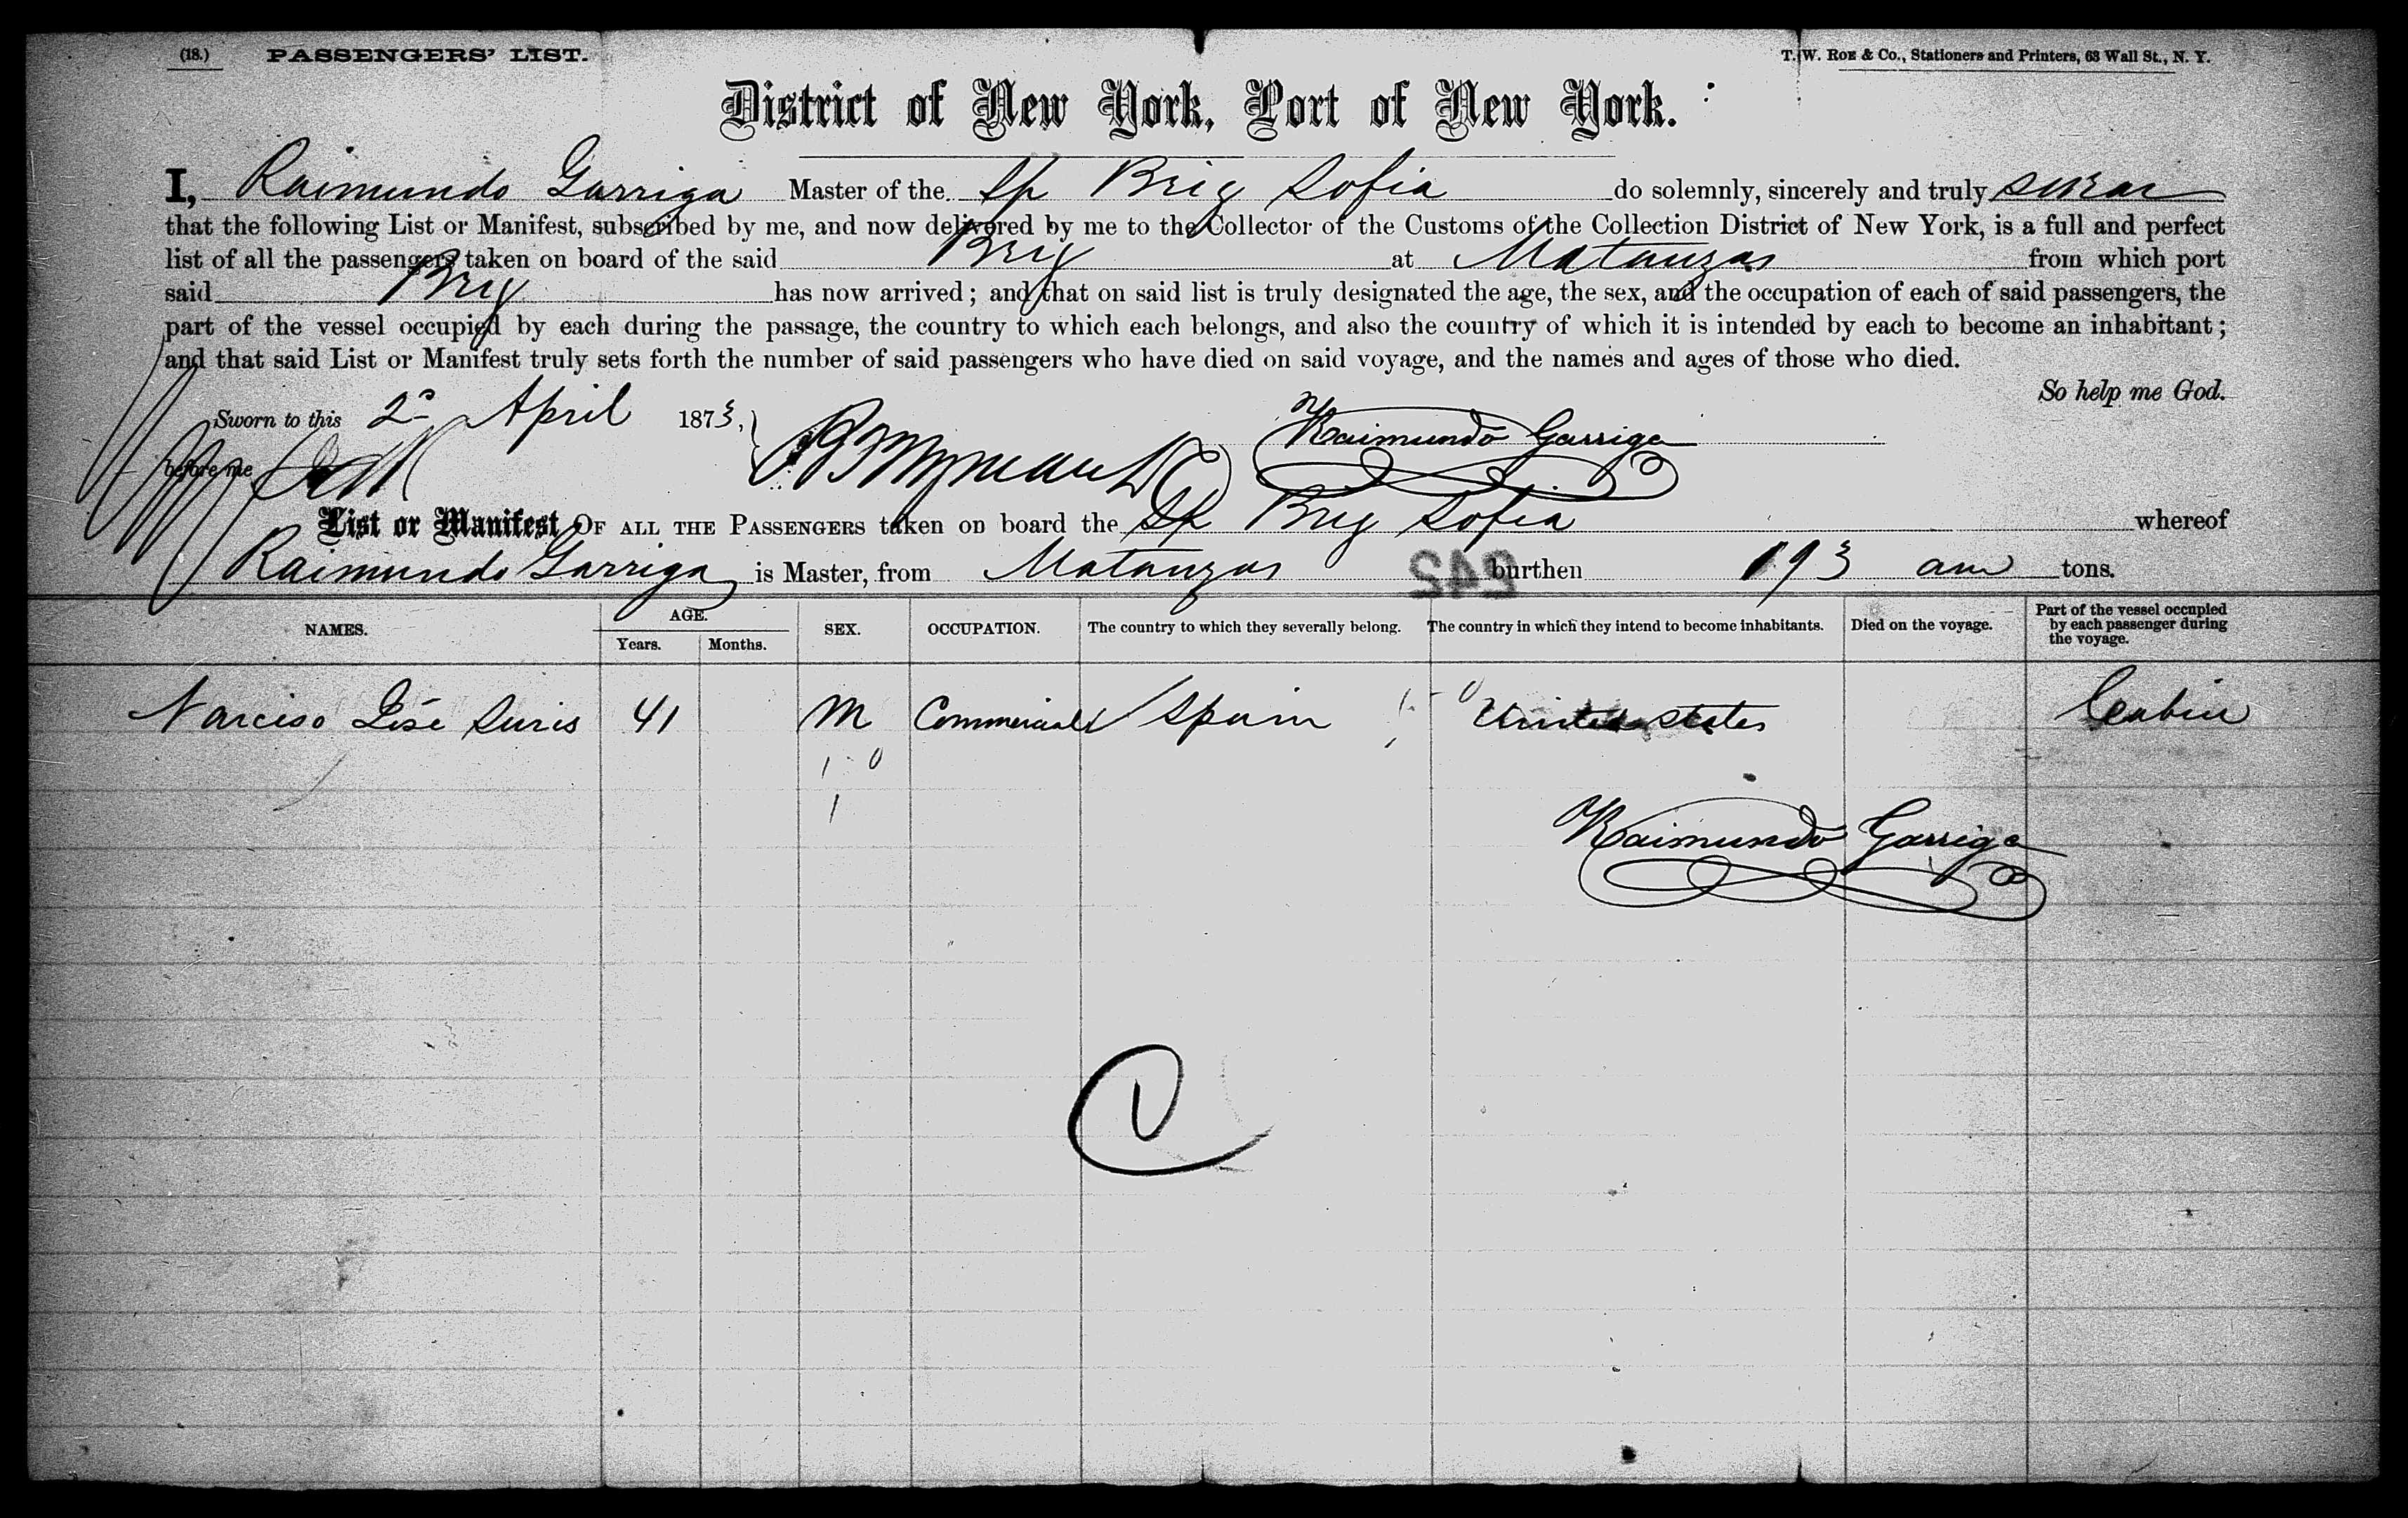 (18.) PASSENGERS' LIST. T. W. Roe & Co., Stationers and Printers, 63 Wall St., N. Y.
District of New York, Port of New York.
I, Raimundo Garriga Master of the Sp Brig Sofia do solemnly, sincerely and truly swear
that the following List or Manifest, subscribed by me, and now delivered by me to the Collector of the Customs of the Collection District of New York, is a full and perfect
list of all the passengers taken on board of the said Brig at Matanzas from which port
said Brig has now arrived; and that on said list is truly designated the age, the sex, and the occupation of each of said passengers, the
part of the vessel occupied by each during the passage, the country to which each belongs, and also the country of which it is intended by each to become an inhabitant;
and that said List or Manifest truly sets forth the number of said passengers who have died on said voyage, and the names and ages of those who died.
So help me God.
Sworn to this 2d April 1873,
Raimundo Garriga
before me
List or Manifest OF ALL THE PASSENGERS taken on board the Sp Brig Sofia whereof
Raimundo Garriga is Master, from Matanzas burthen 193 tons.
NAMES. AGE. SEX. OCCUPATION. The country to which they severally belong. The country in which they intend to become inhabitants. Died on the voyage. Part of the vessel occupied by each passenger during the voyage.
Years. Months.
Narciso José Suris 41 M Commercial Spain United States Cabin
1 0
1
Raimundo Garriga